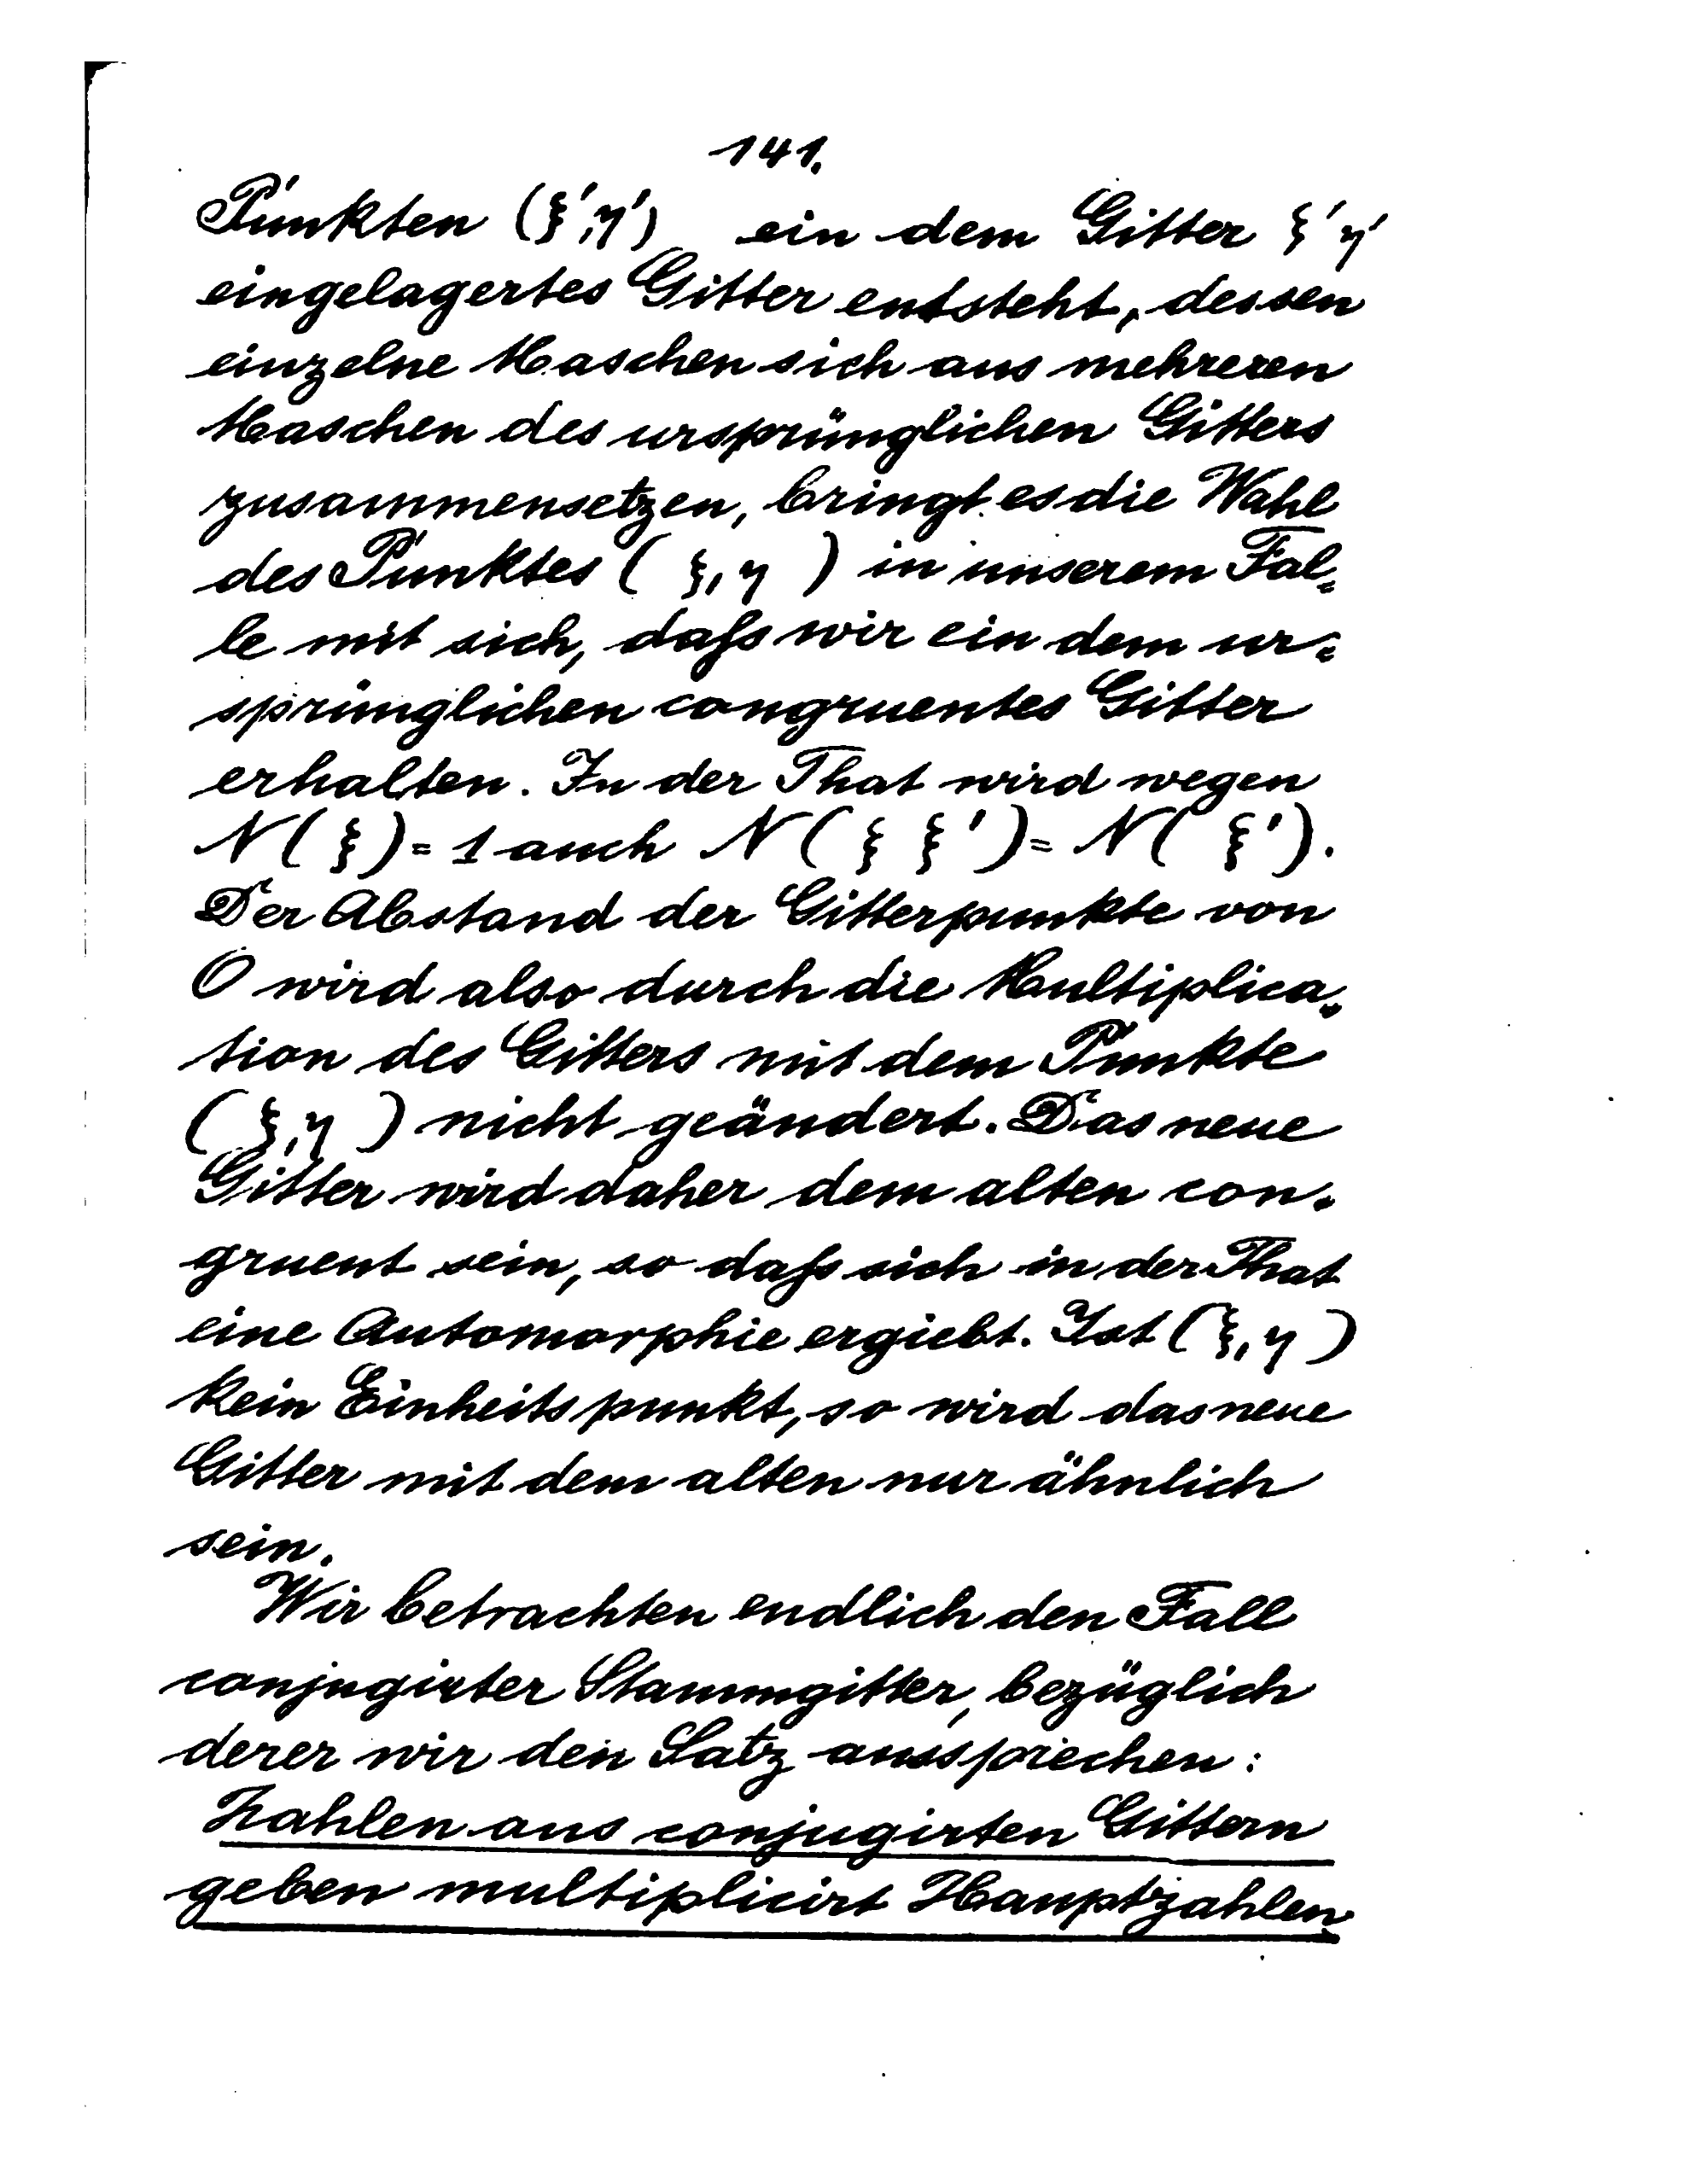 141.
Punkten (ξ',η') ein dem Gitter ξ' η'
eingelagertes Gitter entsteht, dessen
einzelne Maschen sich aus mehreren
Maschen des ursprünglichen Gitters
zusammensetzen, bringt es die Wahl
des Punktes ( ξ, η ) in unserem Fal=
le mit sich, daſs wir ein dem ur=
sprünglichen congruentes Gitter
erhalten. In der That wird wegen
N( ξ ) = 1 auch N( ξ ξ' ) = N( ξ' ).
Der Abstand der Gitterpunkte von
O wird also durch die Multiplica=
tion des Gitters mit dem Punkte
( ξ, η ) nicht geändert. Das neue
Gitter wird daher dem alten con=
gruent sein, so daſs sich in der That
eine Automorphie ergiebt. Ist ( ξ, η )
kein Einheitspunkt, so wird das neue
Gitter mit dem alten nur ähnlich
sein.
Wir betrachten endlich den Fall
conjugirter Stammgitter, bezüglich
derer wir den Satz aussprechen:
Zahlen aus conjugirten Gittern
geben multiplicirt Hauptzahlen.